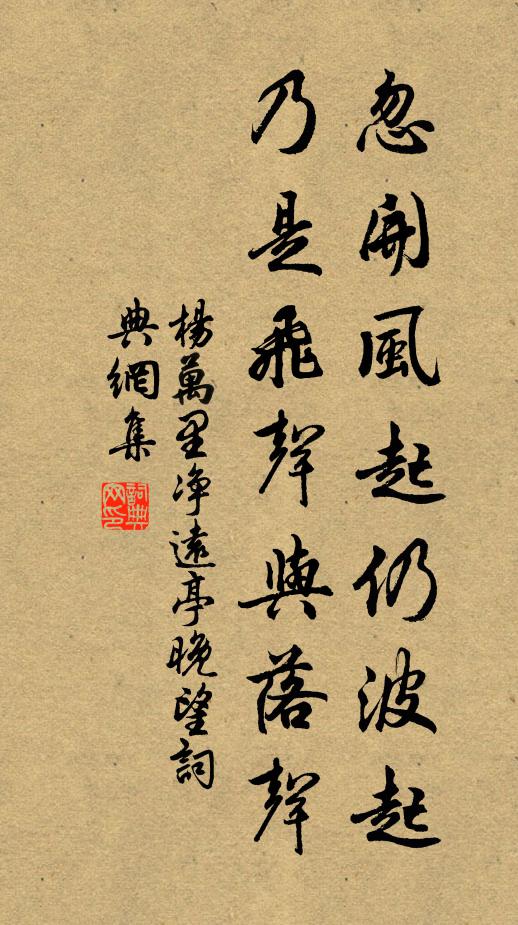 忽聞風起仍波起
乃是飛聲與落聲
楊萬里净遠亭晚望詞
典網集
詞典
网印